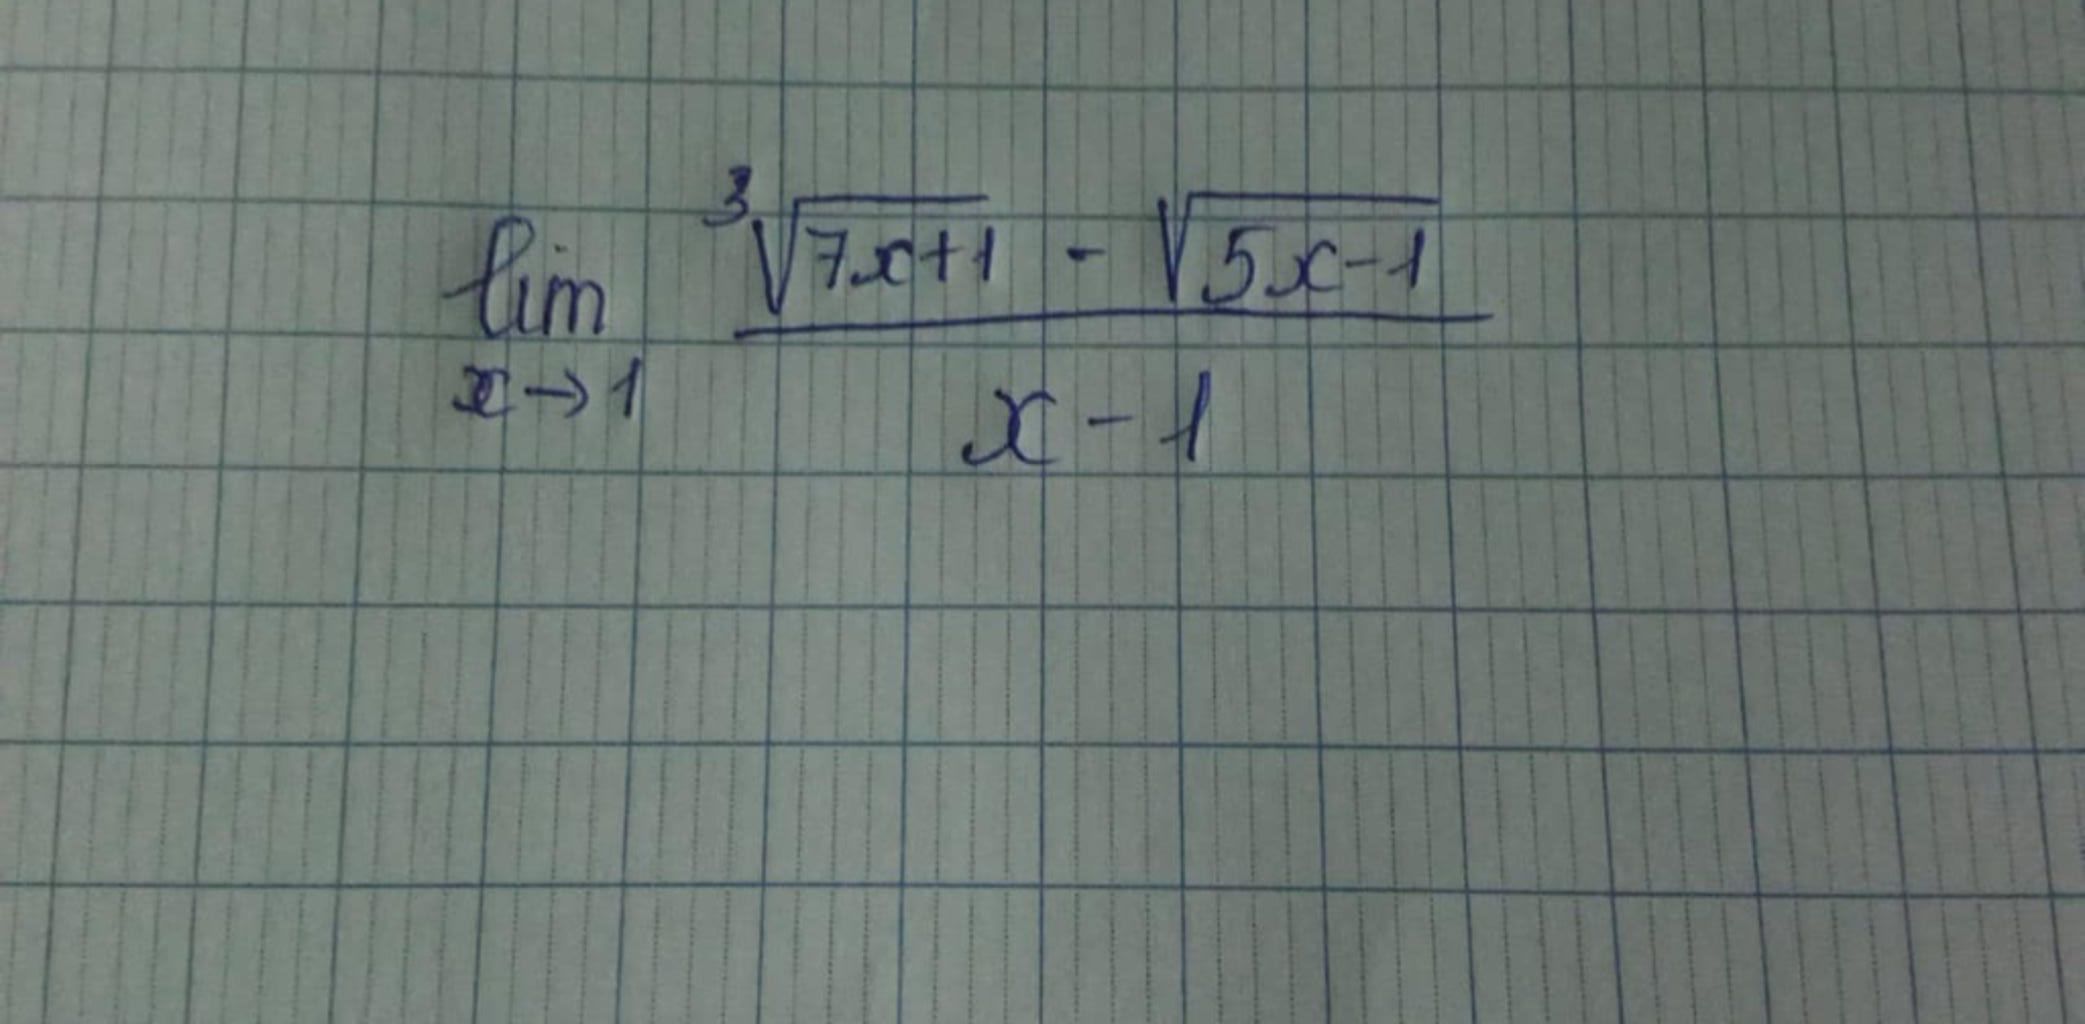 lim x→1 (³√(7x+1) - √(5x-1)) / (x-1)